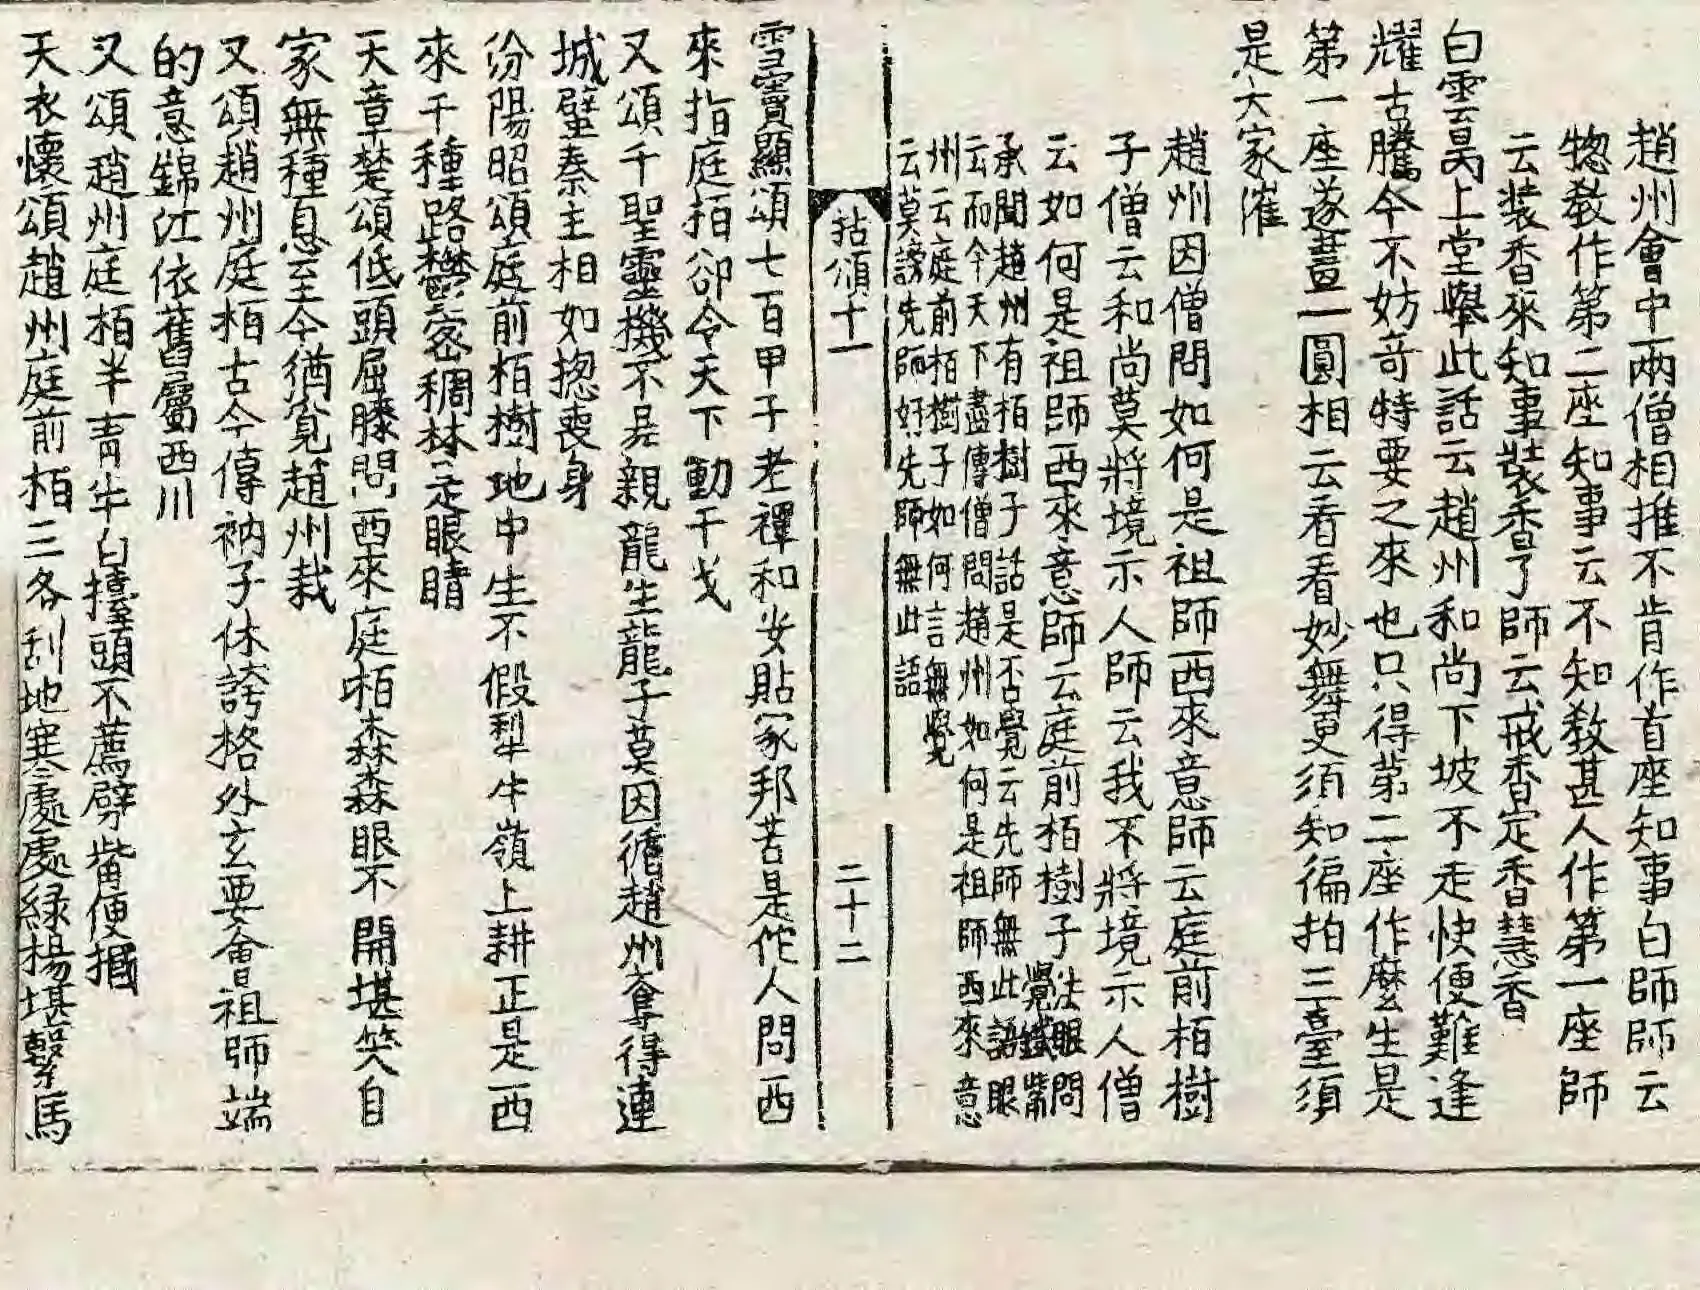 趙州會中兩僧相推不肯作首座知事白師師云
揔教作第二座知事云不知教甚人作第一座師
云裝香來知事裝香了師云戒香定香慧香
白雲昺上堂舉此話云趙州和尚下坡不走快便難逢
耀古騰今不妨奇特要之來也只得第二座作麼生是
第一座遂畫一圓相云看看妙舞更須知徧拍三臺須
是大家催
趙州因僧問如何是祖師西來意師云庭前栢樹
子僧云和尚莫將境示人師云我不將境示人僧
云如何是祖師西來意師云庭前栢樹子法眼問
覺鐵觜
承聞趙州有栢樹子話是否覺云先師無此語眼
云而今天下盡傳僧問趙州如何是祖師西來意
州云庭前栢樹子如何言無覺
云莫謗先師好先師無此語
拈頌十一
二十二
雪竇顯頌七百甲子老禪和安貼家邦苦是佗人問西
來指庭栢卻令天下動干戈
又頌千聖靈機不易親龍生龍子莫因循趙州奪得連
城璧秦主相如揔喪身
汾陽昭頌庭前栢樹地中生不假犁牛嶺上耕正是西
來千種路欝密稠林是眼睛
天章楚頌低頭屈膝問西來庭栢森森眼不開堪笑自
家無種息至今猶覓趙州栽
又頌趙州庭栢古今傳衲子休誇格外玄要會祖師端
的意錦江依舊屬西川
又頌趙州庭栢半青牛白擡頭不薦劈觜便摑
天衣懷頌趙州庭前栢三冬刮地寒處處綠楊堪繫馬